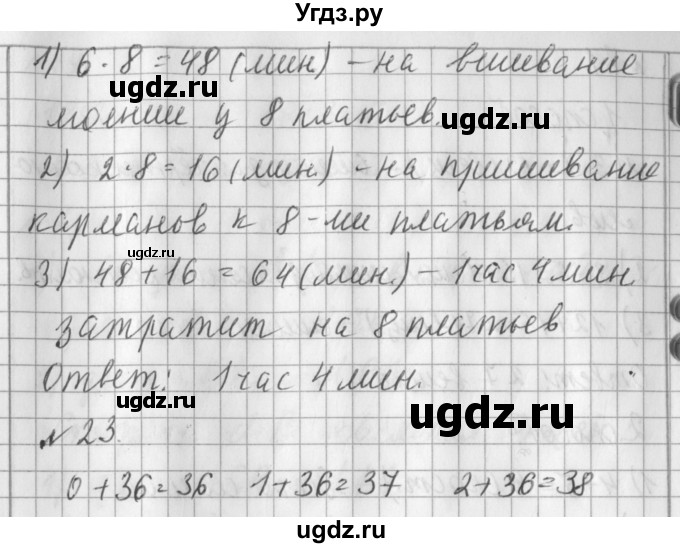 Угдз.ру
1) 6 · 8 = 48 (мин) – на вшивание
молнии у 8 платьев.
2) 2 · 8 = 16 (мин.) – на пришивание
карманов к 8-ми платьям.
3) 48 + 16 = 64 (мин.) – 1 час 4 мин.
затратит на 8 платьев
Ответ: 1 час 4 мин.
№ 23.
0 + 36 = 36 1 + 36 = 37 2 + 36 = 38
ugdz.ru
ugdz.ru
ugdz.ru
ugdz.ru
ugdz.ru
ugdz.ru
ugdz.ru